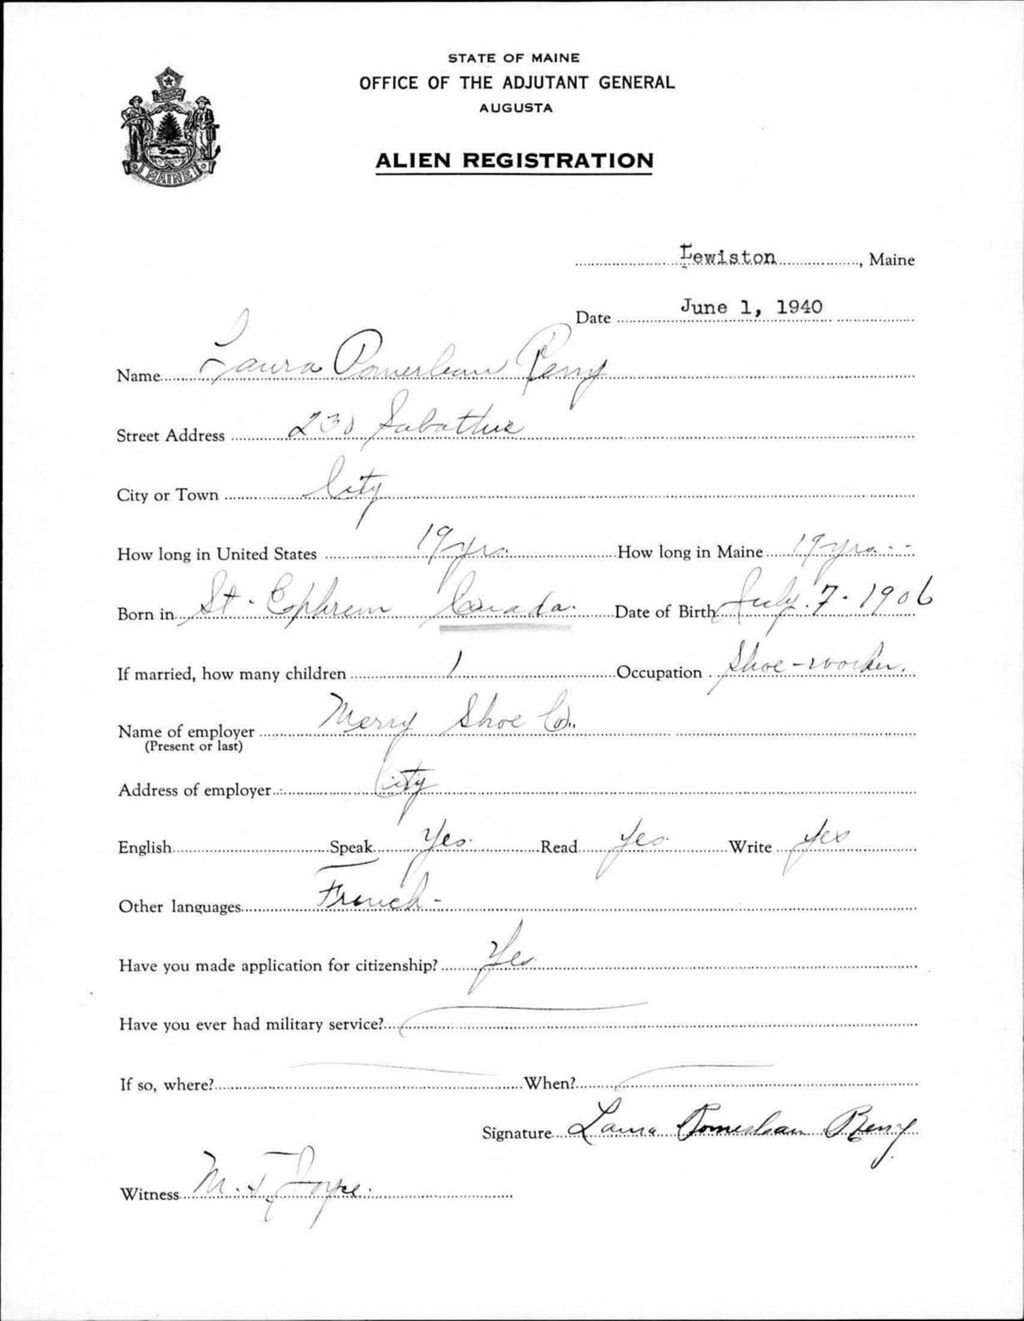 STATE OF MAINE
OFFICE OF THE ADJUTANT GENERAL
AUGUSTA
ALIEN REGISTRATION
MAINE
Lewiston, Maine
Date June 1, 1940
Name Laura Pomerleau
Street Address 230 Sabattus
City or Town City
How long in United States 19 yrs. How long in Maine 19 yrs. - -
Born in St. Ephrem Canada Date of Birth July 7 - 1906
If married, how many children 1 Occupation Shoe-worker.
Name of employer Merry Shoe Co.
(Present or last)
Address of employer City
English Speak Yes Read Yes Write Yes
Other languages French -
Have you made application for citizenship? Yes
Have you ever had military service?
If so, where? When?
Signature Laura Pomerleau
Witness M. J. Joyce